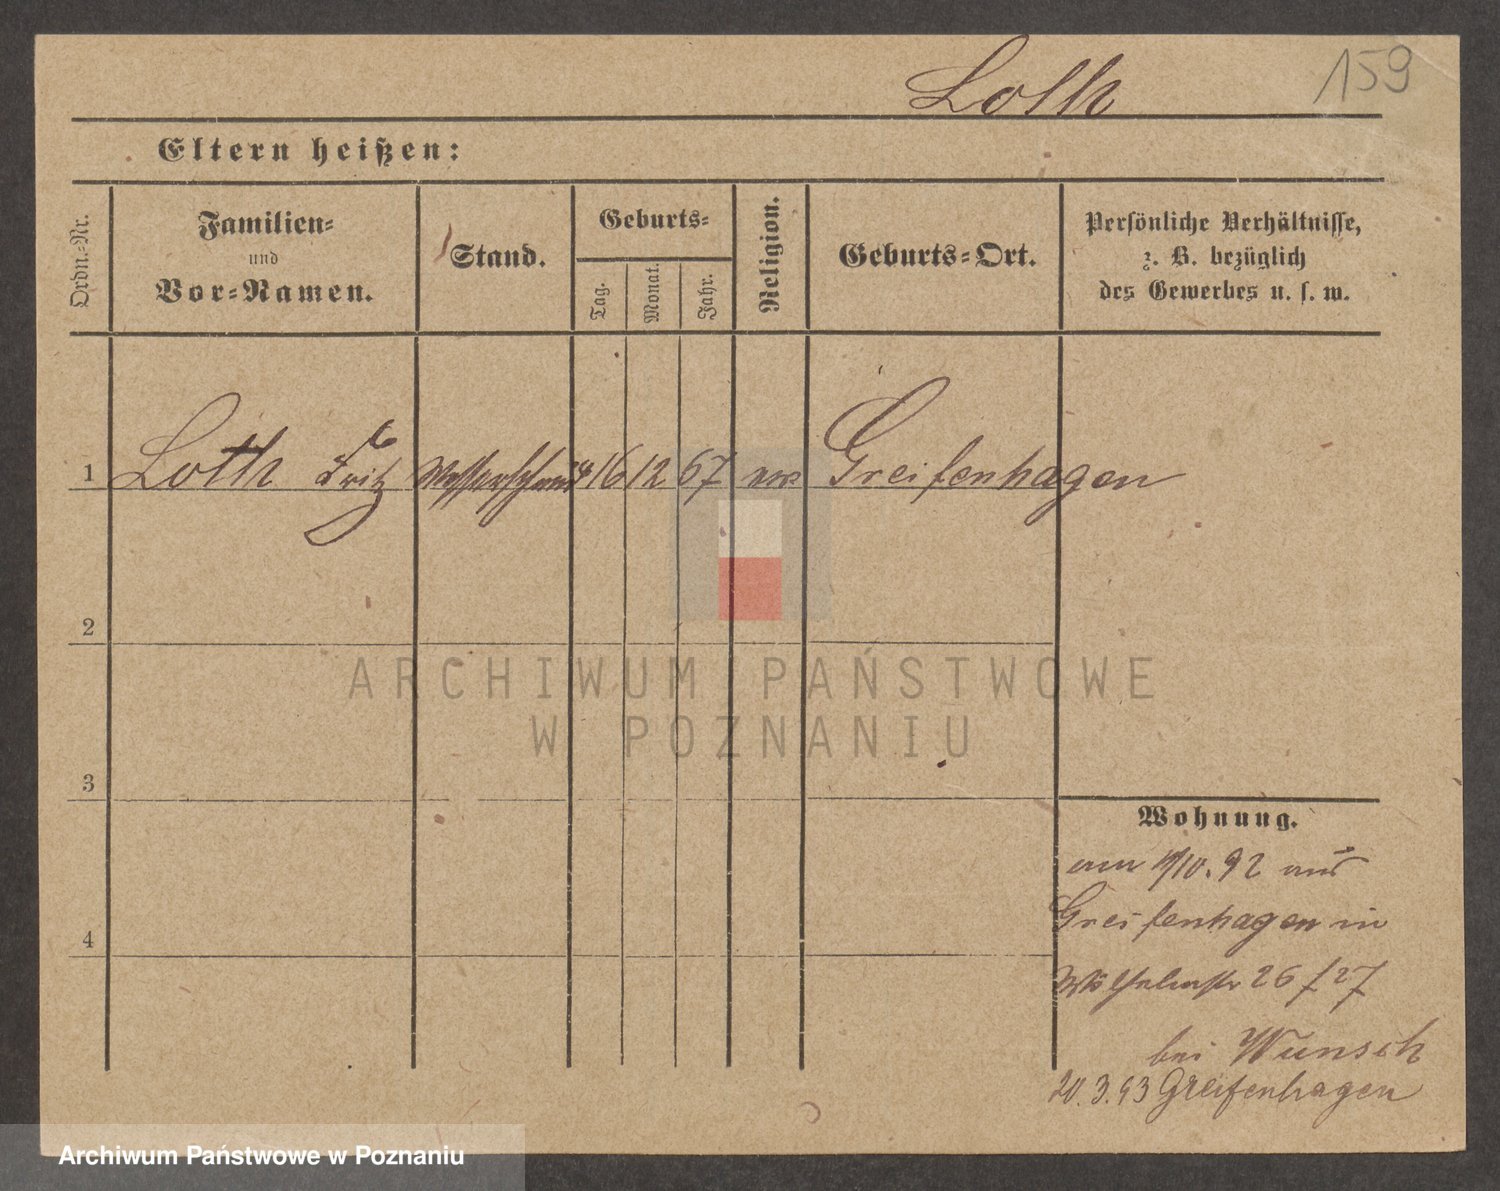 Loth
159
Eltern heißen:
Ordn.-Nr.
Familien-
und
Vor-Namen.
Stand.
Geburts-
Tag.
Monat.
Jahr.
Religion.
Geburts-Ort.
Persönliche Verhältnisse,
z. B. bezüglich
des Gewerbes u. s. w.
1 Loth Fritz 16 12 67 Greifenhagen
2
3
4
Wohnung.
am 10. 92 aus
Greifenhagen in
Wilhelmstr 26/27
bei Wunsch
20. 3. 93 Greifenhagen
ARCHIWUM PAŃSTWOWE
W POZNANIU
Archiwum Państwowe w Poznaniu